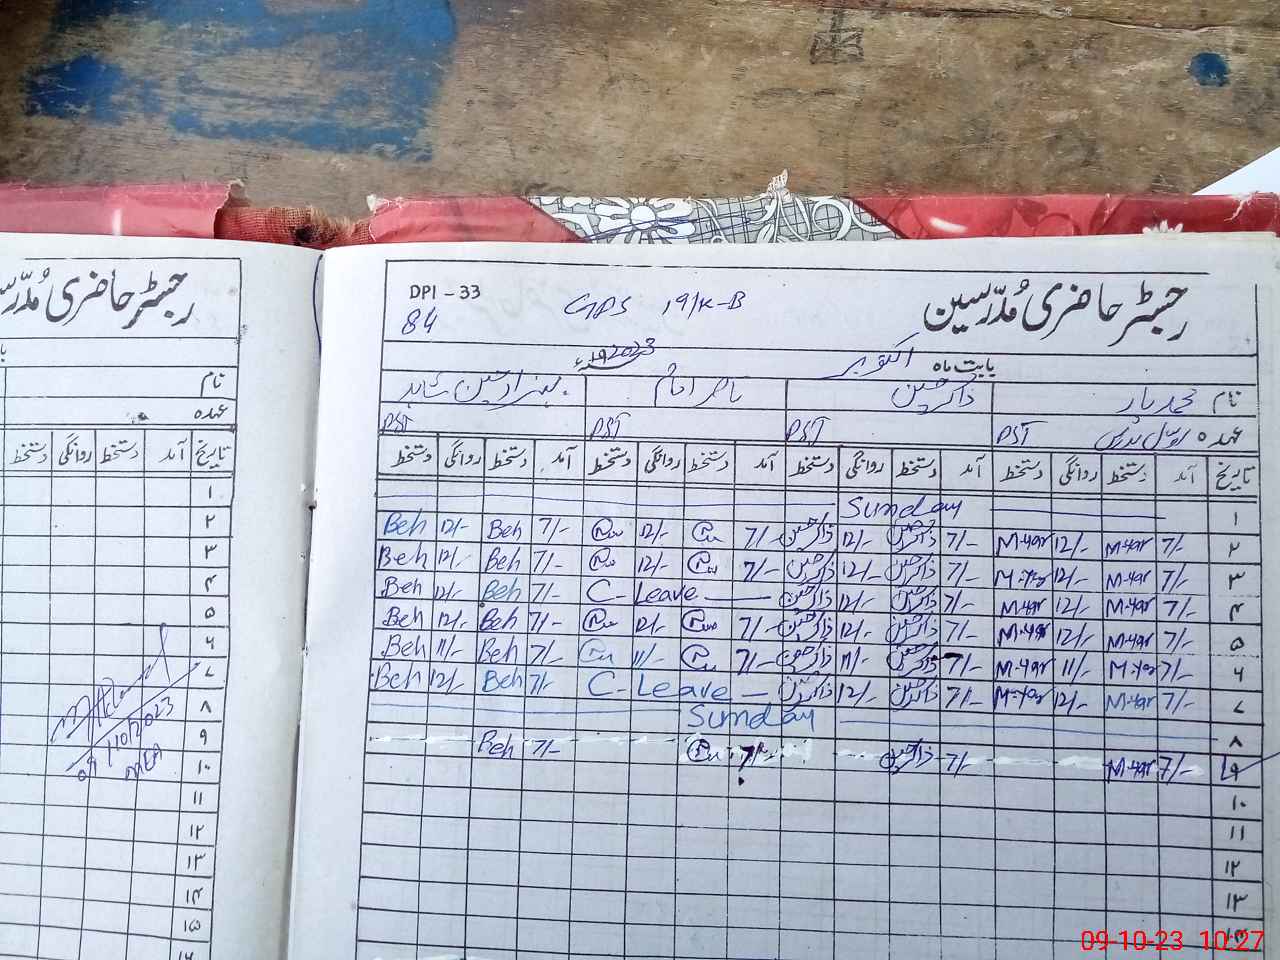 رجسٹر حاضری مُدرّسین
DPI - 33
GPS 19/K-B
84
بابت ماہ اکتوبر 2023
نام محمد یار ذاکر حسین ناصر امام
عہدہ PST PST PST PST
تاریخ آمد دستخط روانگی دستخط آمد دستخط روانگی دستخط آمد دستخط روانگی دستخط آمد دستخط روانگی دستخط
۱ Sunday
۲ 7/- M-yar 12/- M-yar 7/- ذاکر حسین 12/- ذاکر حسین 7/- 12/- 7/- Beh 12/- Beh
۳ 7/- M-yar 12/- M-yar 7/- ذاکر حسین 12/- ذاکر حسین 7/- 12/- 7/- Beh 12/- Beh
۴ 7/- M-yar 12/- M-yar 7/- ذاکر حسین 12/- ذاکر حسین C-Leave 7/- Beh 12/- Beh
۵ 7/- M-yar 12/- M-yar 7/- ذاکر حسین 12/- ذاکر حسین 7/- 12/- 7/- Beh 12/- Beh
۶ 7/- M-yar 11/- M-yar 7/- ذاکر حسین 11/- ذاکر حسین 7/- 11/- 7/- Beh 11/- Beh
۷ 7/- M-yar 12/- M-yar 7/- ذاکر حسین 12/- ذاکر حسین C-Leave 7/- Beh 12/- Beh
۸ Sunday
۹ 7/- M-yar 7/- ذاکر حسین 7/- 7/- Beh
۱۰
۱۱
۱۲
۱۳
رجسٹر حاضری مُدرّسین
نام
عہدہ
تاریخ آمد دستخط روانگی دستخط
۱
۲
۳
۴
۵
۶
۷
۸
۹
۱۰
۱۱
۱۲
۱۳
۱۴
۱۵
09/10/2023
MEA
09-10-23 10:27